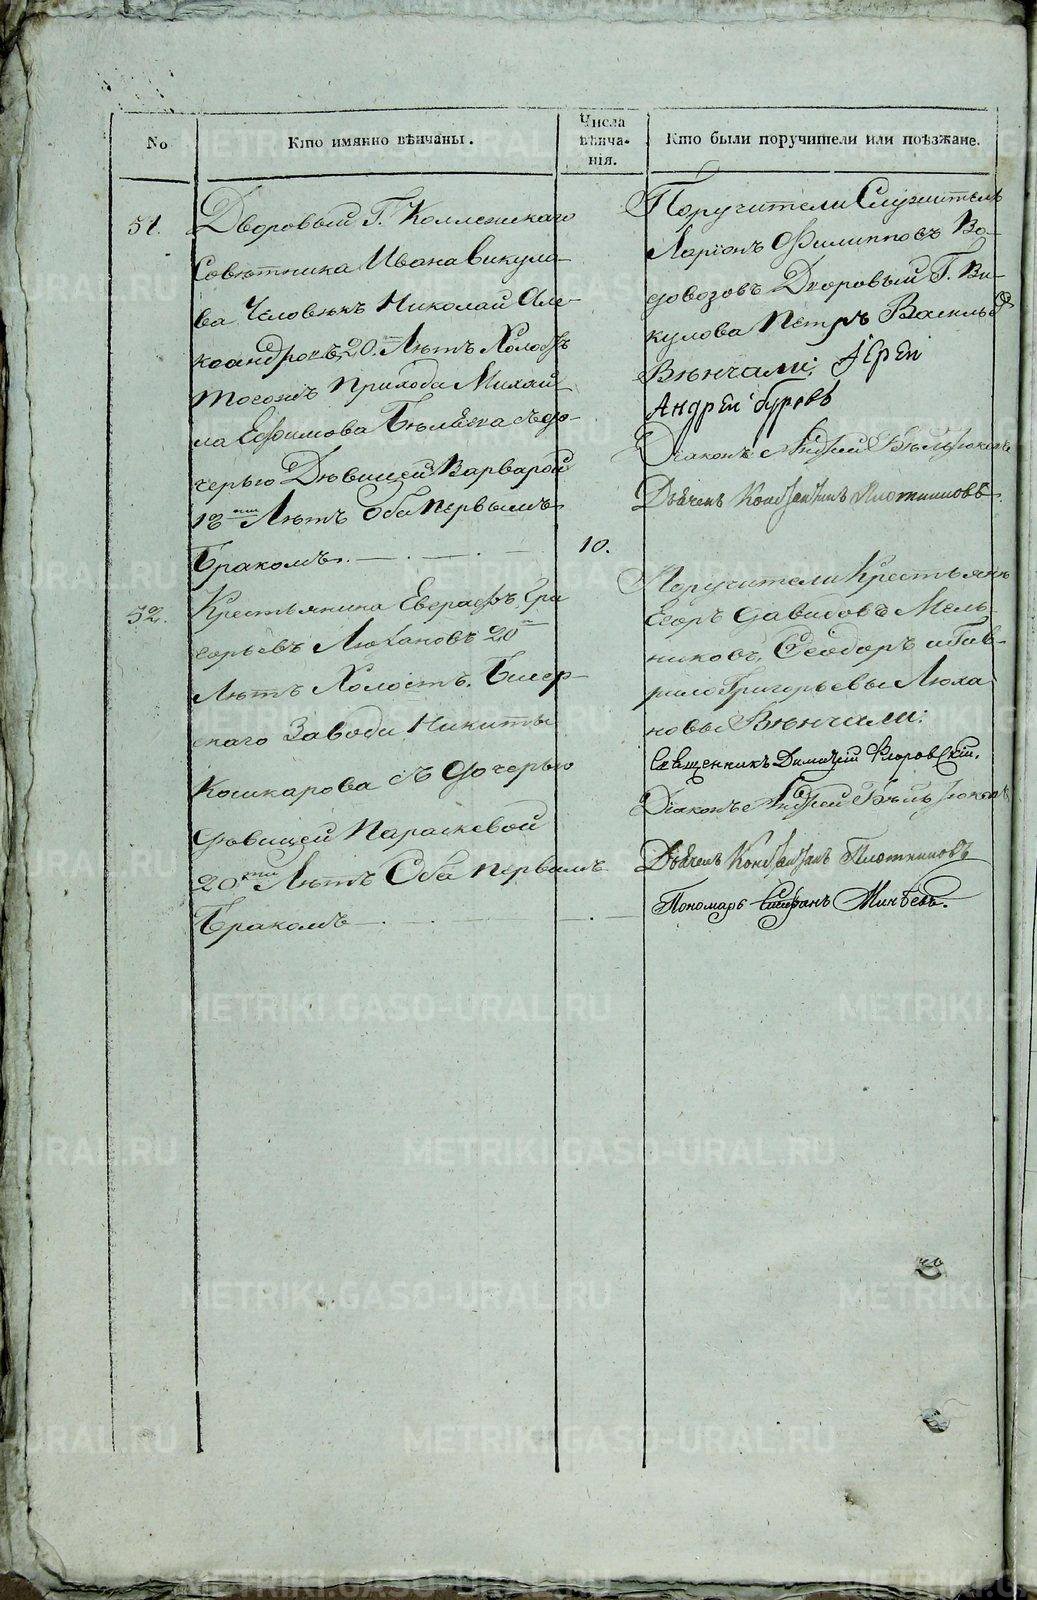 No
Кто имянно вѣнчаны.
Числа
вѣнча-
нія.
Кто были поручители или поѣзжане.
51.
Дворовый Г. Коллежскаго
Совѣтника Ивана Викуло-
ва Человѣкъ Николай Але-
ксандровъ 20. Лѣтъ Холостъ
тогожъ прихода Михай-
ла Ефимова съ до-
черью Дѣвицей Варварой
18 Лѣтъ Оба Первымъ
Бракомъ.
Поручители Служитель
Ларіонъ Филипповъ Во-
довозовъ Дворовый Г. Ви-
кулова Петръ Васильевъ
Вѣнчали: Іерей
Андрей Буровъ
Діаконъ Андрей
Дьячекъ Константинъ Плотниковъ
10.
52.
Крестьянина Евграфъ Гри
горьевъ Люхановъ 20
Лѣтъ Холостъ. Бисер-
скаго Завода Никиты
Кошкарова съ дочерью
дѣвицей Параскевой
20 Лѣтъ Оба первымъ
Бракомъ
Поручители Крестьяне
Егоръ Давидовъ Мель-
никовъ, Ѳеодоръ и Гав-
рило Григорьевы Люха
новы Вѣнчали:
Священникъ Димитрій Флоровскій.
Діаконъ Андрей
Дьячекъ Константинъ Плотниковъ
Пономарь Стефанъ Минѣевъ.
METRIKI.GASO-URAL.RU